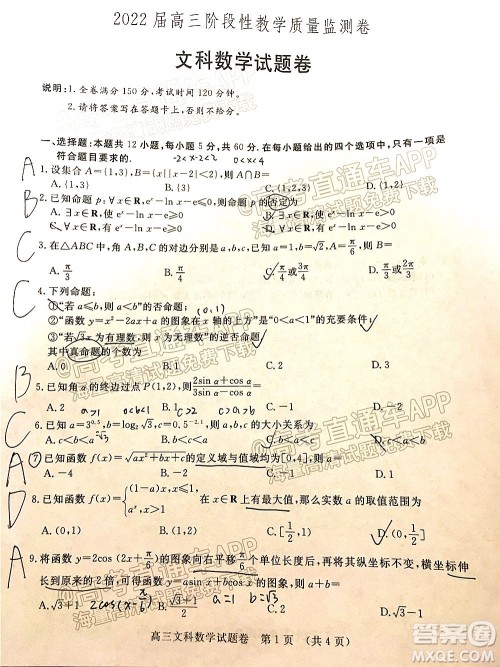 2022届高三阶段性教学质量监测卷
文科数学试题卷
说明:1.全卷满分150分,考试时间120分钟。
2.请将答案写在答题卡上,否则不给分。
一、选择题:本题共12小题,每小题5分,共60分。在每小题给出的四个选项中,只有一项是
符合题目要求的。 -2<x-2<2 0<x<4
A 1.设集合A={1,3},B={x||x-2|<2},则A∩B=
A.{1,3} B.{1} C.{1,2} D.{2,3}
B 2.已知命题p:∀x∈R,eˣ-ln x-e≥0,则命题p的否定为
A.∃x∈R,使 eˣ-ln x-e≥0
C 3.在△ABC中,角A,B,C的对边分别是a,b,c,已知a=1,b=√2,
A.π/3 B.π/4
C 4.下列命题:
①“若a≤b,则a<b”的否命题; (0,1)
②“函数y=x²-2ax+a的图象在x轴的上方”是“0<a<1”的充要条件;
③“若√3x为有理数,则x为无理数”的逆否命题
其中真命题的个数为
A.0 B.1 C.2 D.3
B 5.已知角α的终边过点P(1,2),则(2sin α+cos α)/
A. B.1 C.2
a>1 0<b<1
C 6.已知a=3^0.5,b=log₂√3,c=0.5^-2.1,则a,b,c的大小关系为
A.c<a<b
A ⑦已知函数f(x)=√(ax²+bx+c)的定义域与值域均为[0,4],则a=
A.-4 B.-2 C.-1 D.1
D 8.已知函数f(x)= 在x∈R上有最大值,那么实数a的取值范围为
A.(0,1) B.(1,2) C.(0,1/2] D.[1/2,1)
A 9.将函数y=2cos(2x+π/6)的图象向右平移π/6个单位长度后,再将其纵坐标不变,横坐标伸
长到原来的2倍,得到函数y=asin x+bcos x的图象,则a+b=
A.√3+1 2cos(x-π/6) B.√3 a=1 b=√3 C.1 D.√3-1
高三文科数学试题卷 第1页 (共4页)